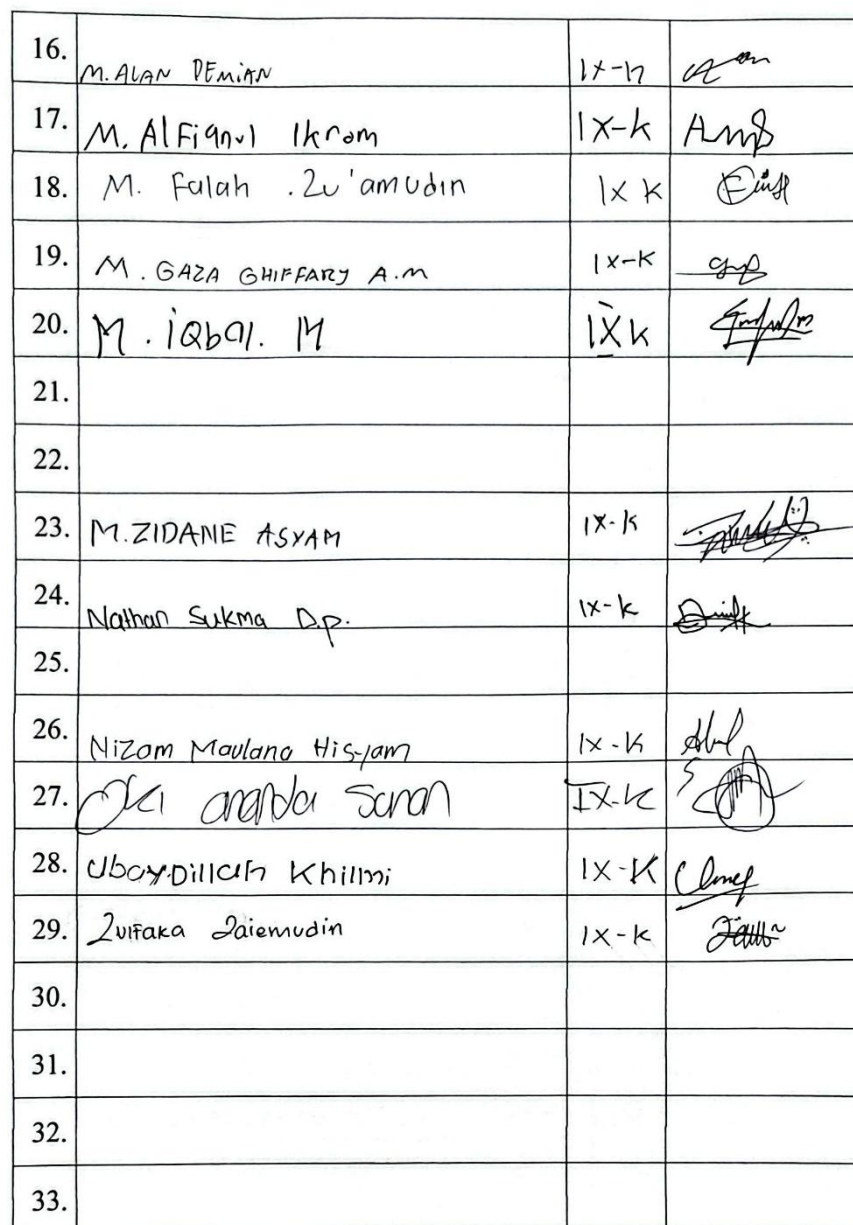 16. M. ALAN DEMIAN IX-K
17. M. AlFiqnul Ikrom IX-K
18. M. Falah .Zu'amudin IX K
19. M. GAZA GHIFFARY A.M IX-K
20. M. iQbal. M IX K
21.
22.
23. M.ZIDANE ASYAM IX-K
24. Nathan Sukma D.p. IX-K
25.
26. Nizam Maulana Hisyam IX-K
27. Oki ananda Sanan IX-K
28. UbayDillah Khilmi IX-K
29. Zulfaka Zaiemudin IX-K
30.
31.
32.
33.